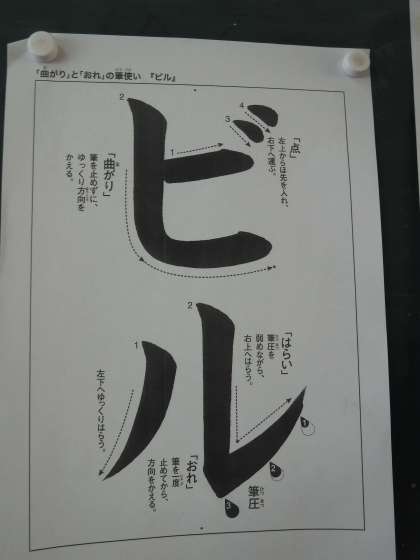 「曲がり」と「おれ」の筆使い 『ビル』
ビル
1
2
3
4
「点」
左上からほ先を入れ、
右下へ運ぶ。
「曲がり」
筆を止めずに、
ゆっくり方向を
かえる。
1
2
「はらい」
筆圧を
弱めながら、
右上へはらう。
左下へゆっくりはらう。
「おれ」
筆を一度
止めてから、
方向をかえる。
1
2
3
筆圧